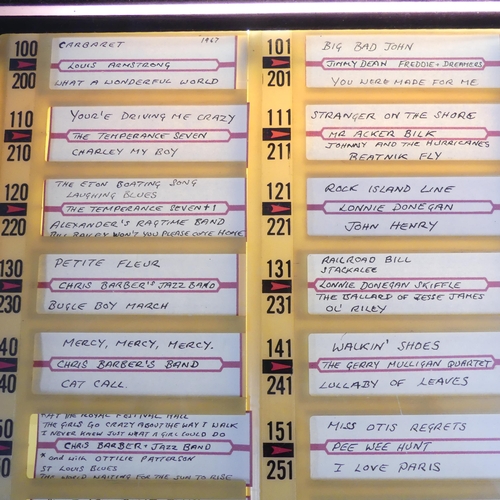 100
CARBARET 1967
LOUIS ARMSTRONG
WHAT A WONDERFUL WORLD
200
101
BIG BAD JOHN
JIMMY DEAN FREDDIE + DREAMERS
YOU WERE MADE FOR ME
201
110
YOUR'E DRIVING ME CRAZY
THE TEMPERANCE SEVEN
CHARLEY MY BOY
210
111
STRANGER ON THE SHORE
MR ACKER BILK
JOHNNY AND THE HURRICANES
BEATNIK FLY
211
120
THE ETON BOATING SONG
LAUGHING BLUES
THE TEMPERANCE SEVEN + 1
ALEXANDER'S RAGTIME BAND
BILL BAILEY WON'T YOU PLEASE COME HOME
220
121
ROCK ISLAND LINE
LONNIE DONEGAN
JOHN HENRY
221
130
PETITE FLEUR
CHRIS BARBER'S JAZZ BAND
BUGLE BOY MARCH
230
131
RAILROAD BILL
STACKALEE
LONNIE DONEGAN SKIFFLE
THE BALLARD OF JESSE JAMES
OL' RILEY
231
40
MERCY, MERCY, MERCY.
CHRIS BARBER'S BAND
CAT CALL.
40
141
WALKIN' SHOES
THE GERRY MULLIGAN QUARTET
LULLABY OF LEAVES
241
50
*AT THE ROYAL FESTIVAL HALL
THE GIRLS GO CRAZY ABOUT THE WAY I WALK
I NEVER KNEW JUST WHAT A GIRL COULD DO
CHRIS BARBER + JAZZ BAND
* and with OTTILIE PATTERSON
ST LOUIS BLUES
THE WORLD WAITING FOR THE SUN TO RISE
50
151
MISS OTIS REGRETS
PEE WEE HUNT
I LOVE PARIS
251